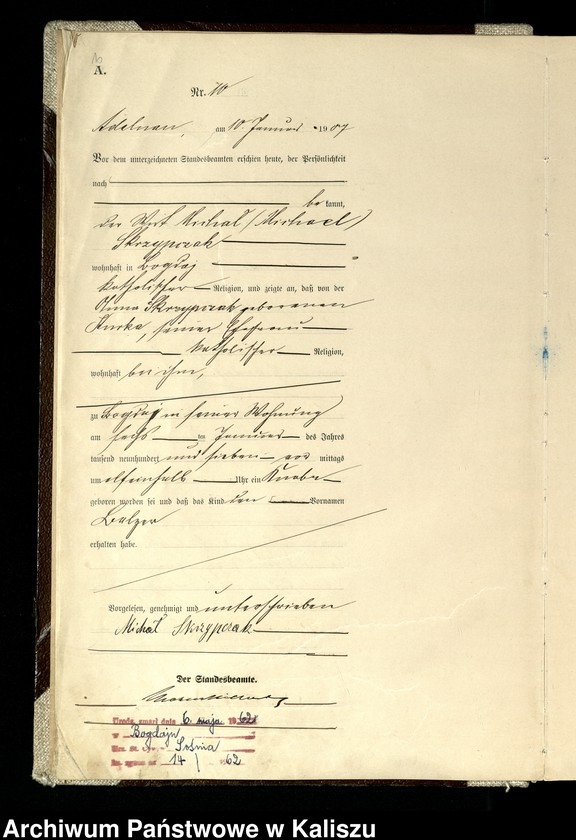 A.
Nr. 10
Adelnau, am 10. Januar 1907
Vor dem unterzeichneten Standesbeamten erschien heute, der Persönlichkeit
nach
be kannt,
der Wirt Michał (Michael)
Skrzypczak
wohnhaft in Bogdaj
katholischer Religion, und zeigte an, daß von der
Skrzypczak geborenen
Kurka, seiner Ehefrau
katholischer Religion,
wohnhaft bei ihm,
zu Bogdaj in seiner Wohnung
am sechs ten Januar des Jahres
tausend neunhundert und sieben vor mittags
um elfeinhalb Uhr ein Knabe
geboren worden sei und daß das Kind den Vornamen
Balzer
erhalten habe.
Vorgelesen, genehmigt und unterschrieben
Michał Skrzypczak
Der Standesbeamte.
6 maja 1962
w Bogdajn
Sośnia
14 / 62
Archiwum Państwowe w Kaliszu